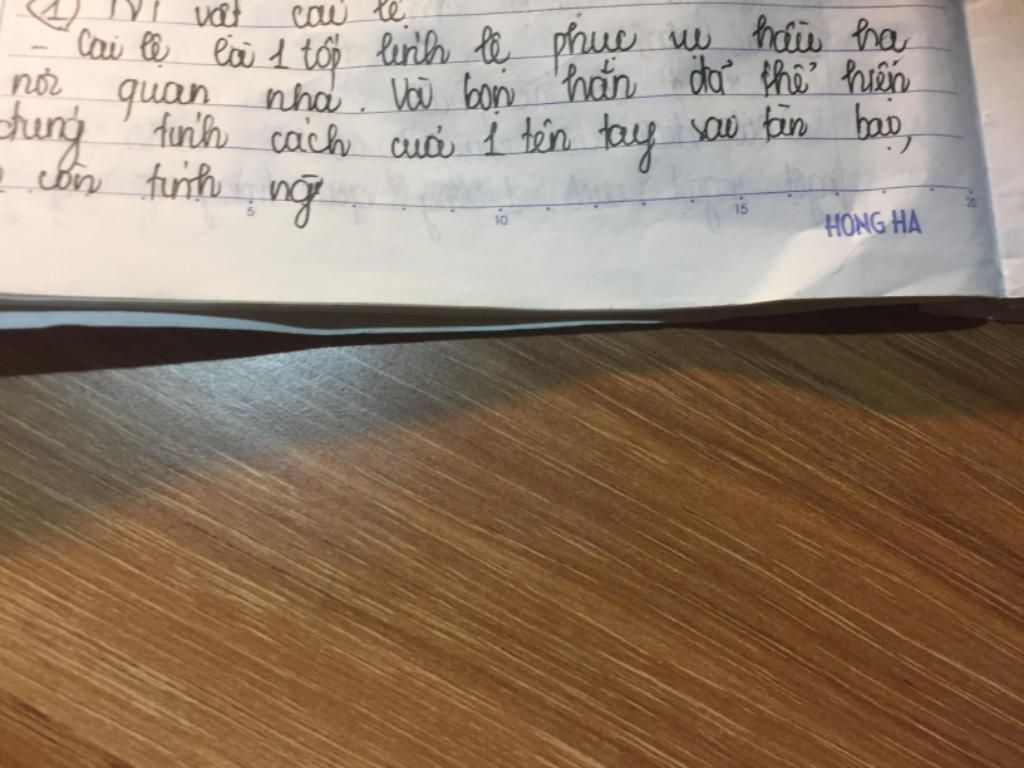 (1) N vật cai lệ
- Cai lệ là 1 tốp lính lệ phục vụ hầu hạ
nơi quan nha. Và bọn hắn đã thể hiện
đúng tính cách của 1 tên tay sao tàn bạo,
còn tính ng
5 10 15 20
HONG HA